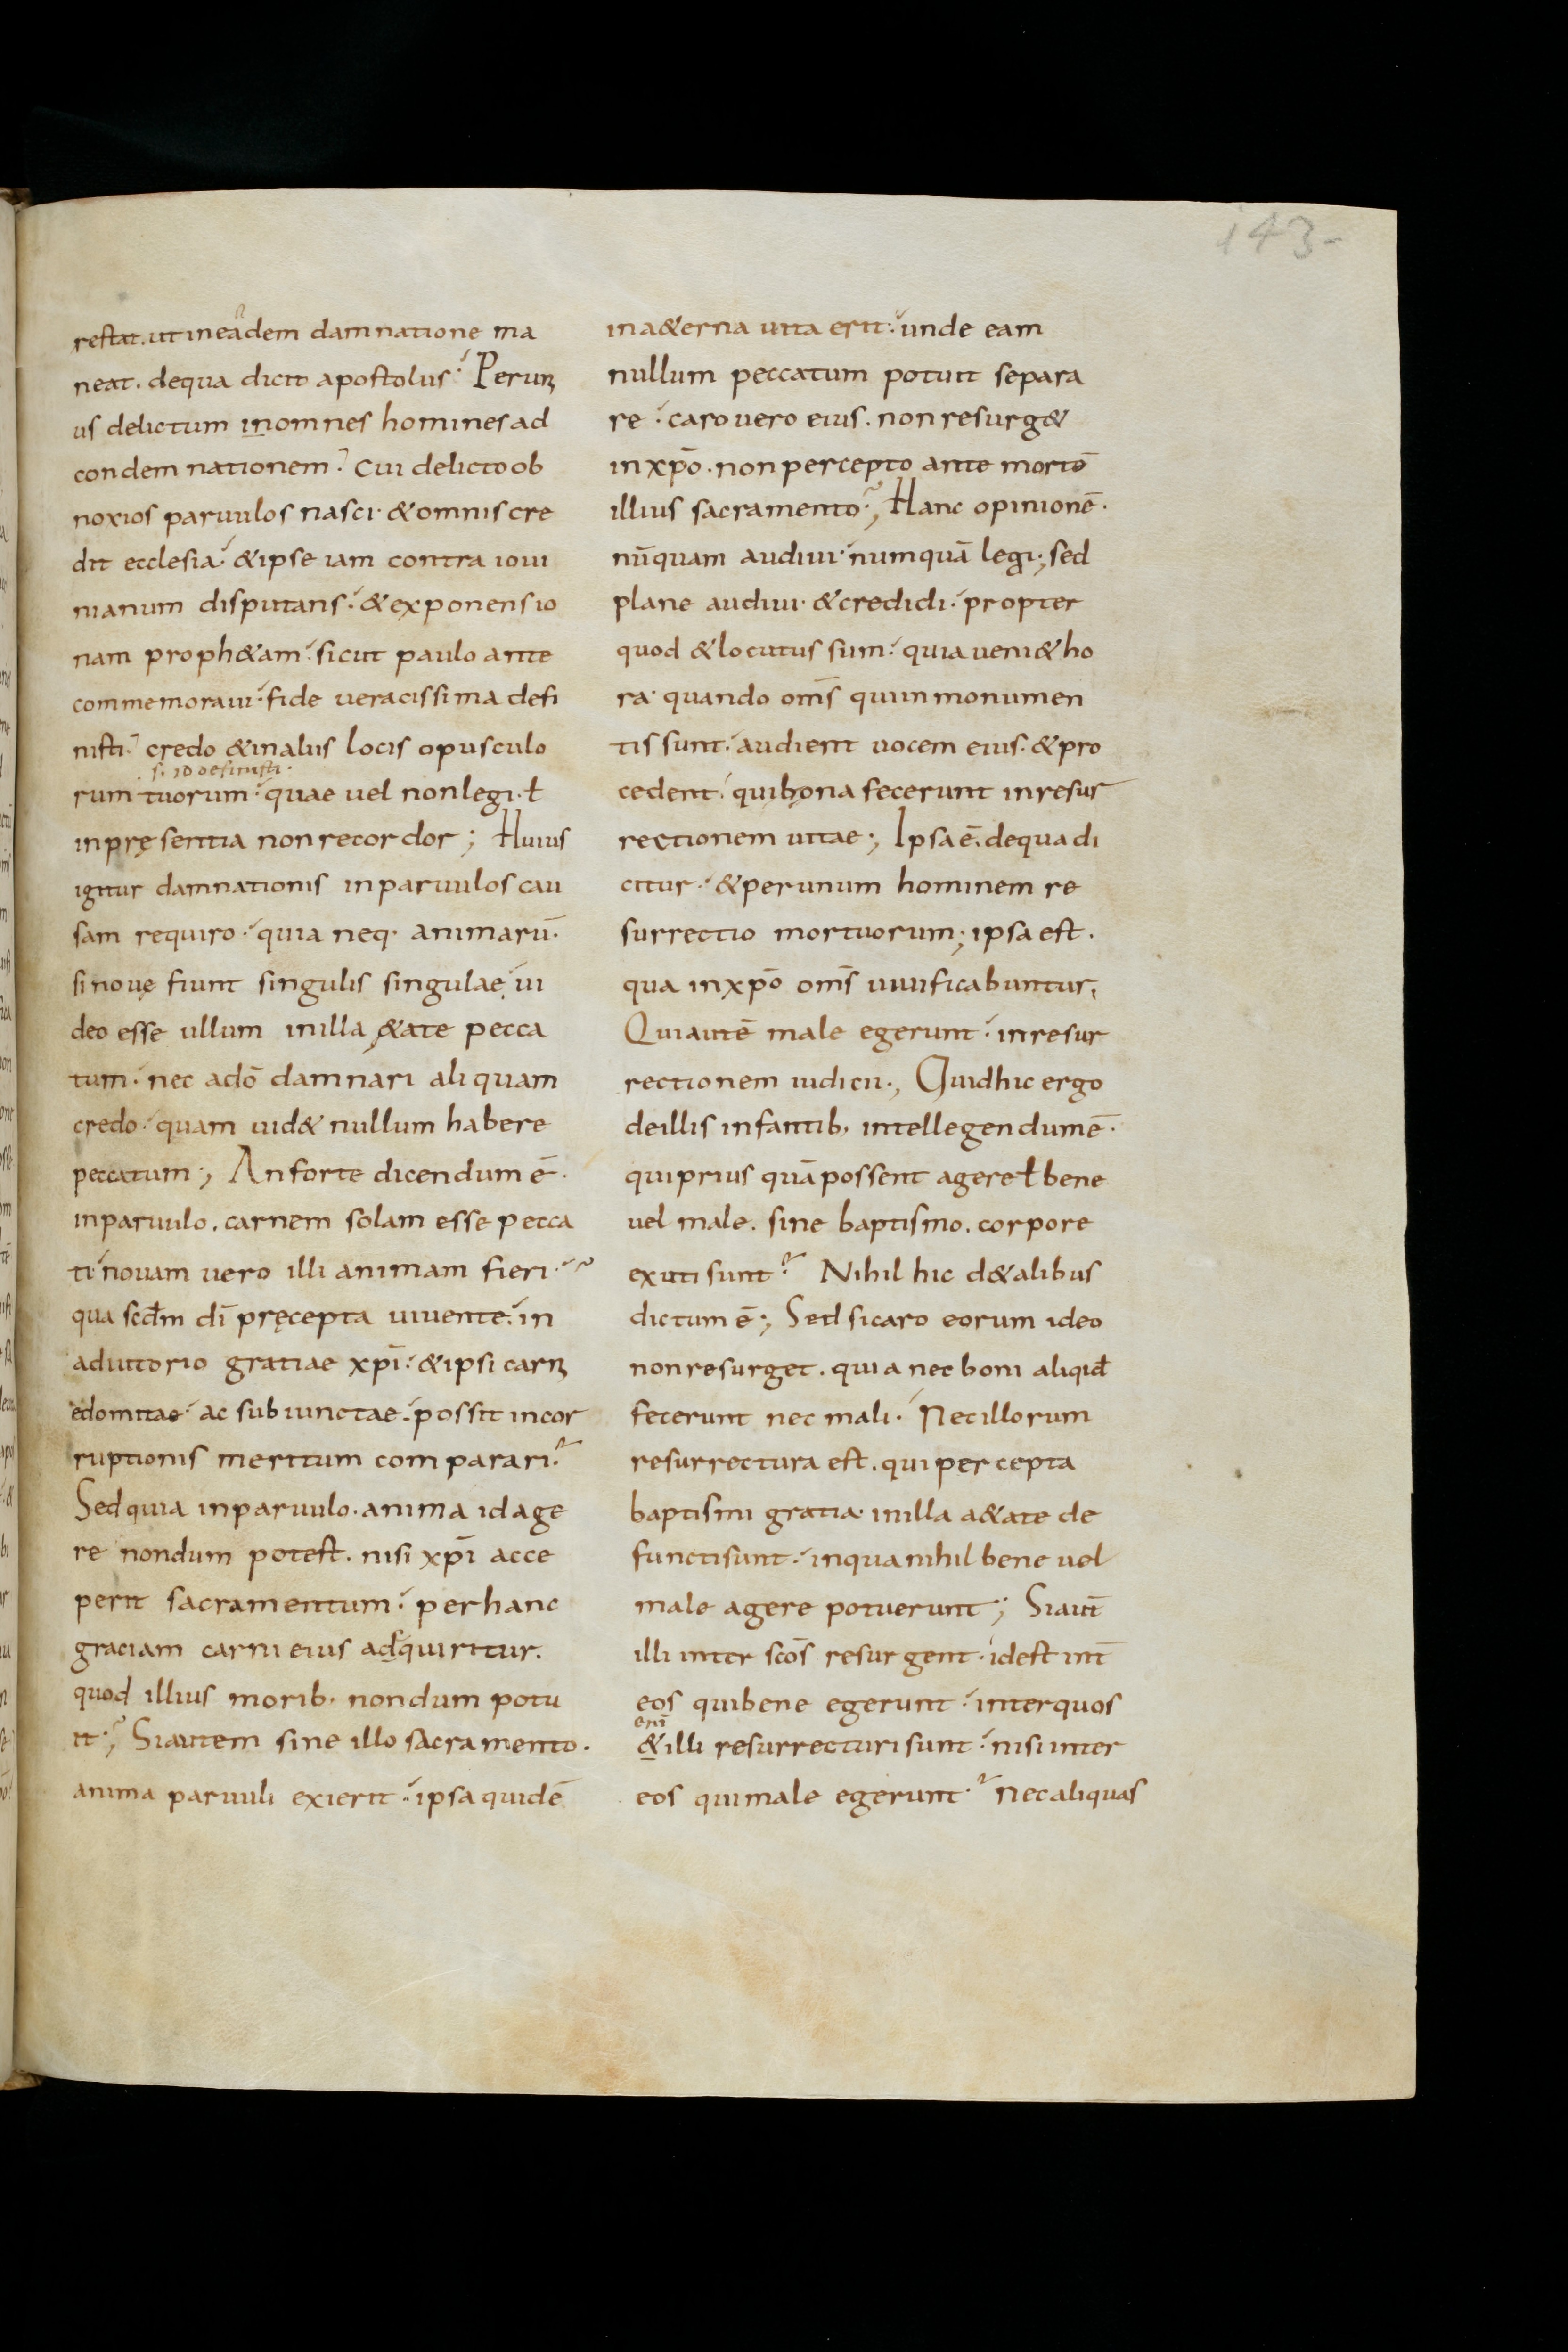 143-
restat. ut in eadem damnatione ma
neat. dequa dicit apostolus. Per un
us delictum in omnes homines ad
condemnationem? cui delicto ob
noxios paruulos nasci. & omnis cre
dit ecclesia. & ipse iam contra ioui
nianum disputans. & exponens io
nam proph&am. sicut paulo ante
commemoraui. fide ueracissima defi
nisti. credo & in aliis locis opusculo
s. id definisti.
rum tuorum. quae uel non legi. ł
in pręsentia non recordor; Huius
igitur damnationis in paruulos cau
sam requiro. quia neq. animarū.
si nouę fiunt singulis singulae. ui
deo esse ullum in illa &ate pecca
tum. nec a dō damnari aliquam
credo. quam uid& nullum habere
peccatum; An forte dicendum ē.
in paruulo. carnem solam esse pecca
ti. nouam uero illi animam fieri.
qua scđm dī pręcepta uiuente. in
adiutorio gratiae xpī. & ipsi carn
edomitae. ac subiunctae. possit incor
ruptionis meritum comparari?
Sed quia in paruulo. anima id age
re nondum potest. nisi xpī acce
perit sacramentum. per hanc
graciam carni eius adquiritur.
quod illius morib. nondum potu
it; Si autem sine illo sacramento.
anima paruuli exierit. ipsa quidē
in a&erna uita erit. unde eam
nullum peccatum potuit separa
re. caro uero eius. non resurg&
in xpō. non percepto ante mortē
illius sacramento; Hanc opinionē.
nūquam audiui. numquā legi; sed
plane audiui. & credidi. propter
quod & locutus sum. quia ueni& ho
ra. quando om̄s qui in monumen
tis sunt. audient uocem eius. & pro
cedent. qui bona fecerunt in resur
rectionem uitae; Ipsa ē. dequa di
citur. & per unum hominem re
surrectio mortuorum; ipsa est.
qua in xpō om̄s uiuificabuntur;
Qui autē male egerunt. in resur
rectionem iudicii; Quid hic ergo
de illis infantib. intellegendum ē.
qui prius quā possent agere ł bene
uel male. sine baptismo. corpore
exuti sunt? Nihil hic d& alibus
dictum ē; Sed si caro eorum ideo
non resurget. quia nec boni aliqiđ
fecerunt nec mali. Nec illorum
resurrectura est. qui percepta
baptismi gratia. in illa a&ate de
functi sunt. in qua nihil bene uel
male agere potuerunt; Si aut̄
illi inter scōs resurgent. id est int̄
eos qui bene egerunt. inter quos
eni
& illi resurrecturi sunt. nisi inter
eos qui male egerunt? Nec aliquas